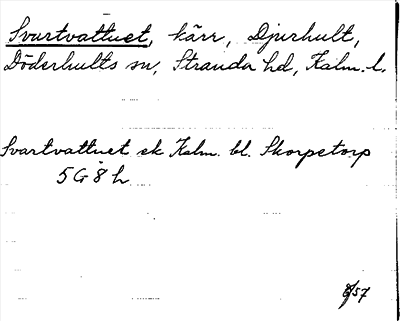 Svartvattnet, kärr, Djurhult,
Döderhults sn, Stranda hd, Kalm. l.
Svartvattnet ek Kalm. bl. Skorpetorp
5G8h
/57